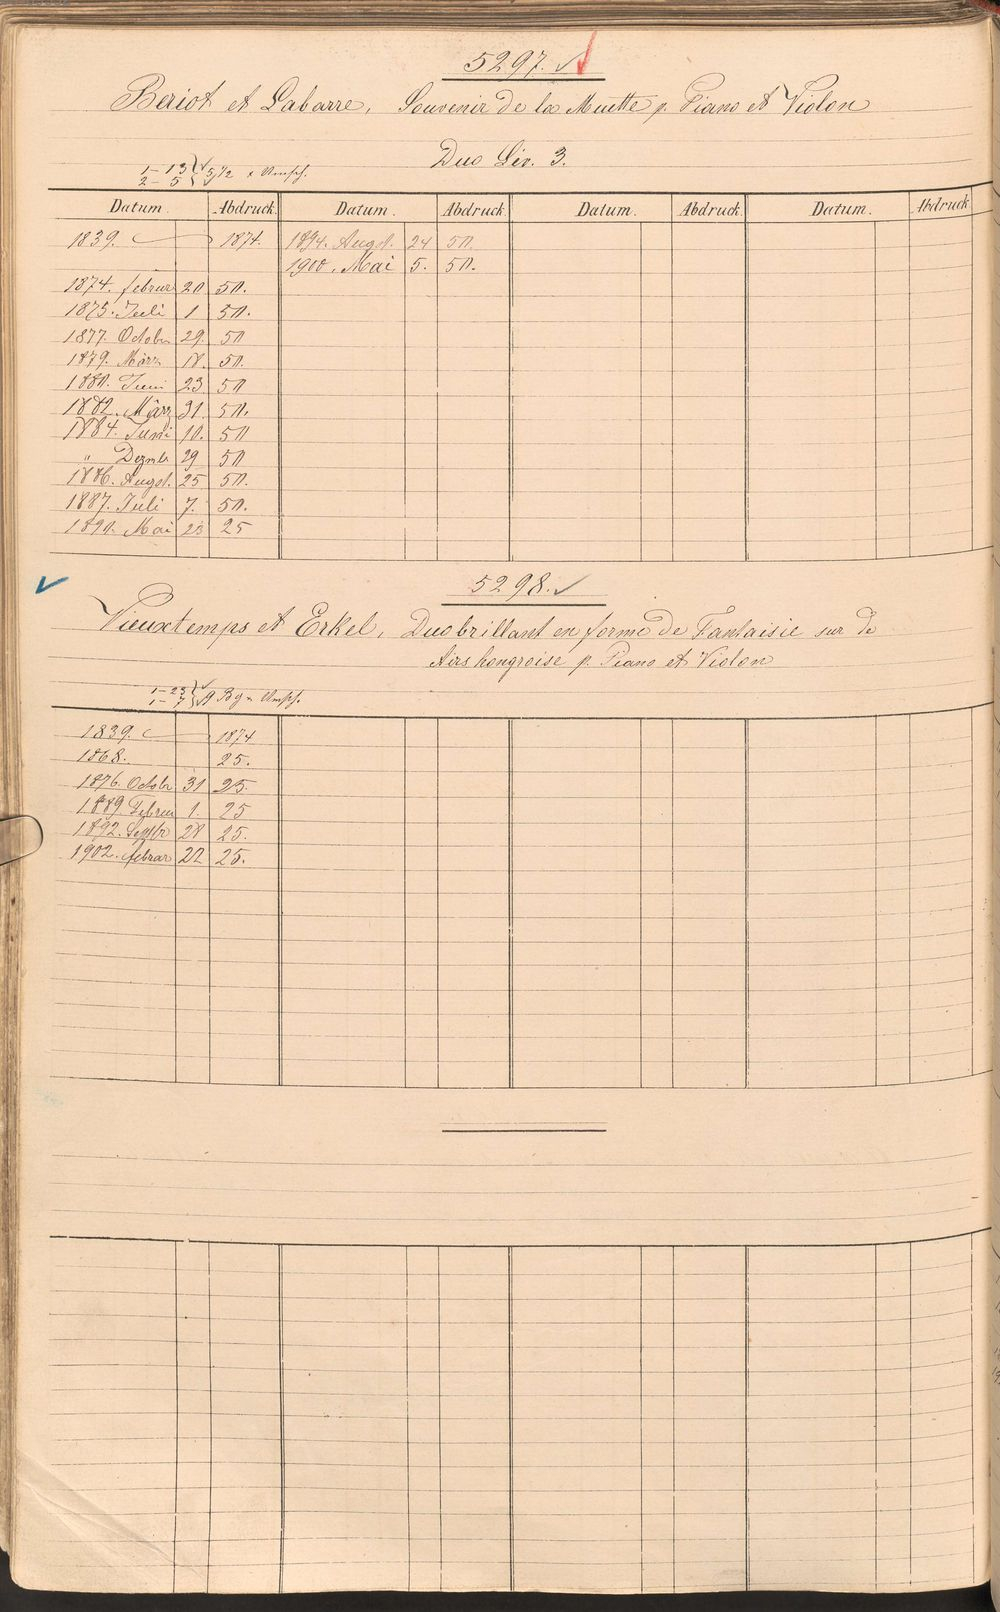 5297.
Beriot et Labarre, Souvenir de la Muette p. Piano et Violon
Duo Liv. 3.
1 – 13
2 – 5 } 5 1/2 x Umsch.
Datum. Abdruck. Datum. Abdruck. Datum. Abdruck. Datum. Abdruck.
1839. 1874. 1894. Augst. 24 50.
1900. Mai 5. 50.
1874. februar 20 50.
1875. Juli 1 50.
1877. October 29. 50
1879. März 18. 50.
1880. Juni 23 50
1882. März 31. 50.
1884. Juni 10. 50
" Dezmbr 29 50
1886. Augst. 25 50.
1887. Juli 7. 50.
1890. Mai 23 25
5298.
Vieuxtemps et Erkel, Duo brillant en forme de Fantaisie sur de
Airs hongroise p. Piano et Violon
1 – 23
1 – 7 } 9 Bg x Umsch.
1839. 1874
1868. 25.
1876. Octobr 31 25.
1889 Februar 1. 25
1892. Septbr 28 25.
1902. februar 22 25.